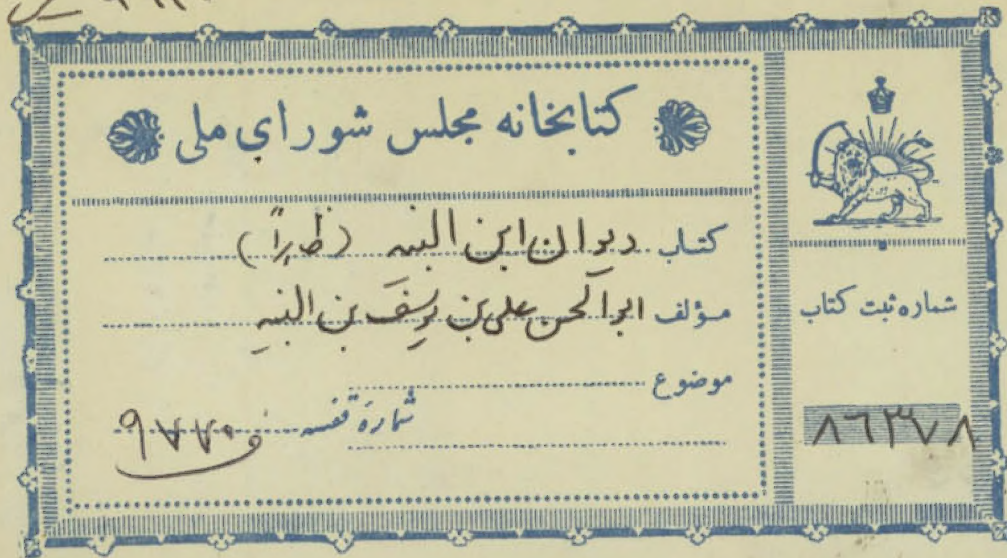 کتابخانه مجلس شورای ملی
کتاب دیوان ابن النبیه (ظاهراً)
مؤلف ابوالحسن علی بن یوسف بن النبیه
موضوع
شماره قفسه ۹۷۷۰
شماره ثبت کتاب
۸۶۳۷۸